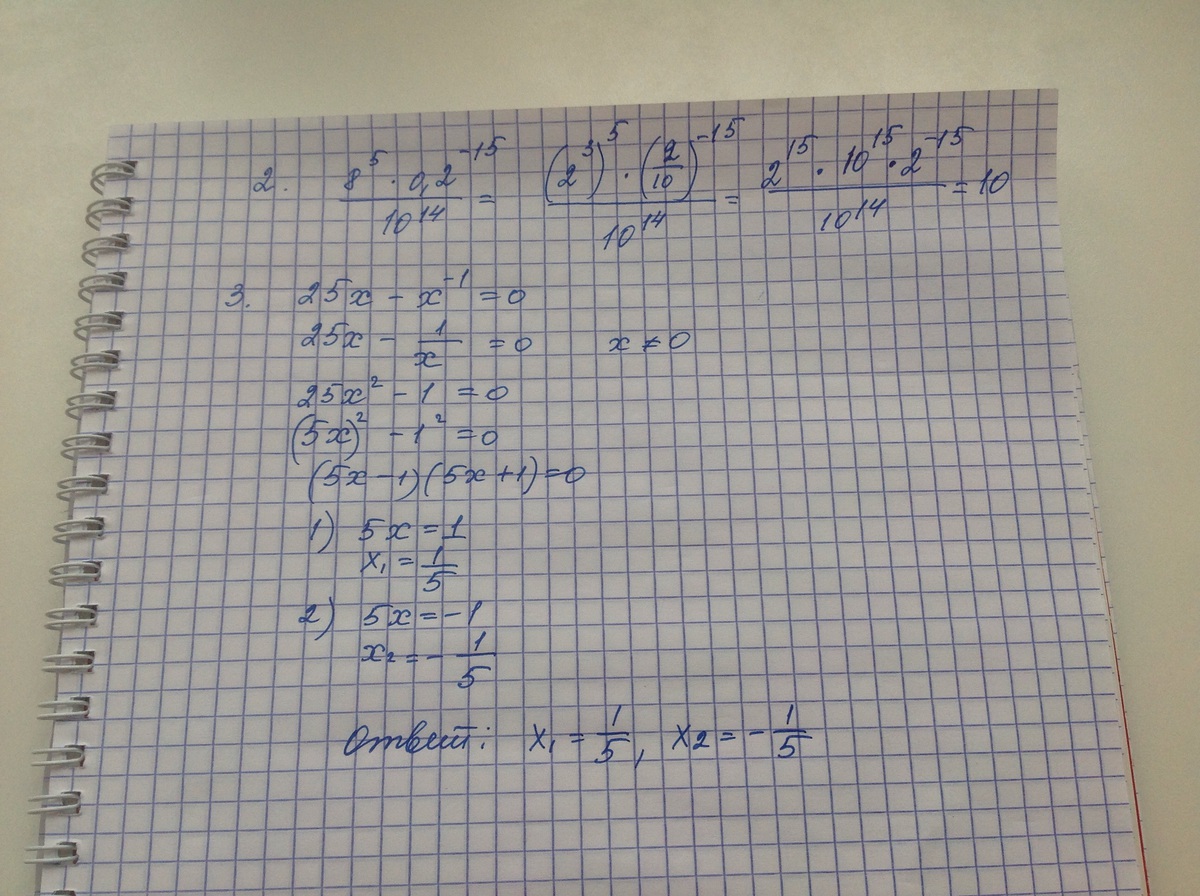 2. (8⁵ · 0,2⁻¹⁵)/10¹⁴ = ((2³)⁵ · (2/10)⁻¹⁵)/10¹⁴ = (2¹⁵ · 10¹⁵ · 2⁻¹⁵)/10¹⁴ = 10
3. 25x − x⁻¹ = 0
25x − 1/x = 0 x ≠ 0
25x² − 1 = 0
(5x)² − 1² = 0
(5x−1)(5x+1)=0
1) 5x = 1
x₁ = 1/5
2) 5x = −1
x₂ = − 1/5
Ответ: x₁ = 1/5, x₂ = − 1/5